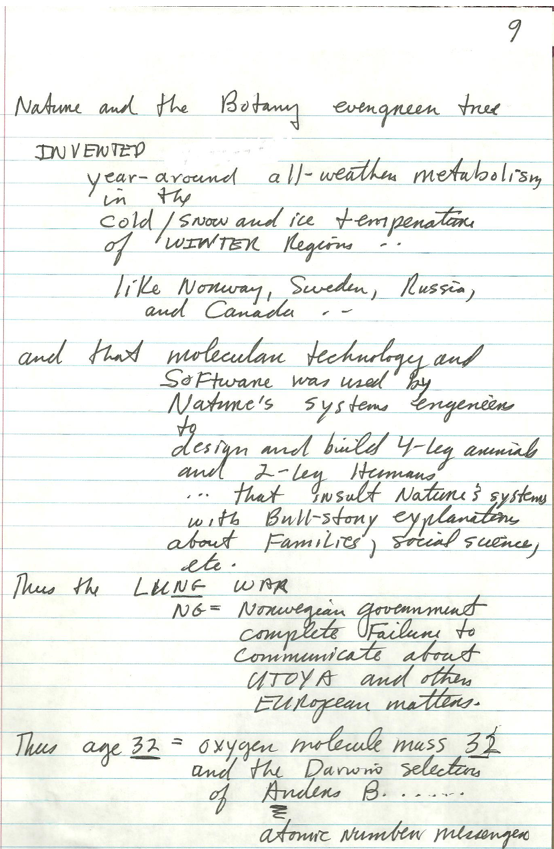 9
Nature and the Botany evergreen tree
INVENTED
year-around all-weather metabolism
in the
cold/snow and ice temperature
of WINTER Regions ..
like Norway, Sweden, Russia,
and Canada . -
and that molecular technology and
Software was used by
Nature's systems engeneers
to
design and build 4-leg animals
and 2-leg Humans
... that insult Nature's systems
with Bull-story explanations
about Families, social science,
etc.
Thus the LUNG WAR
NG = Norwegian government
complete Failure to
communicate about
UTOYA and other
EURopean matters.
Thus age 32 = oxygen molecule mass 32
and the Darwin selection
of Anders B. ......
atomic number messenger